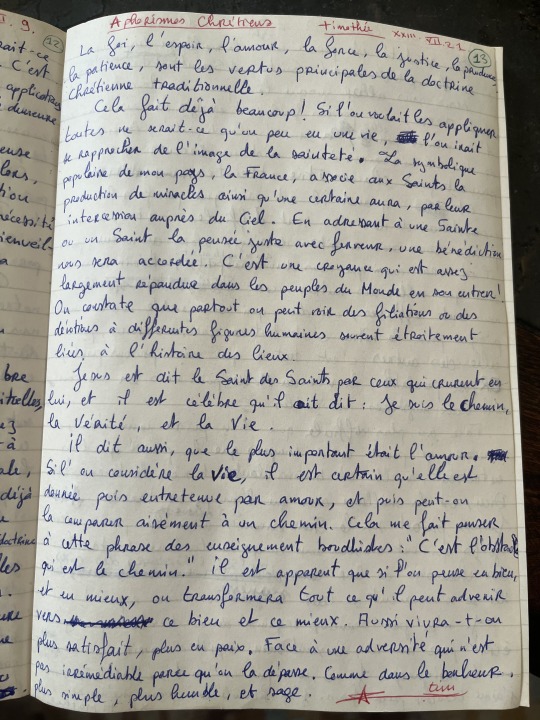 I. 9.
12
Aphorismes Chrétiens Timothée XXIII. VII. 21
13
La foi, l'espoir, l'amour, la force, la justice, la prudence,
la patience, sont les vertus principales de la doctrine
Chrétienne traditionnelle.
Cela fait déjà beaucoup! Si l'on voulait les appliquer
toutes ne serait-ce qu'un peu en une vie, l'on irait
se rapprocher de l'image de la sainteté. La symbolique
populaire de mon pays, la France, associe aux Saints la
production de miracles ainsi qu'une certaine aura, par leur
intercession auprès du Ciel. En adressant à une Sainte
ou un Saint la pensée juste avec ferveur, une bénédiction
nous sera accordée. C'est une croyance qui est assez
largement répandue dans les peuples du Monde en son entier!
On constate que partout on peut voir des filiations ou des
dévotions à différentes figures humaines souvent étroitement
liées à l'histoire des lieux.
Jésus est dit le Saint des Saints par ceux qui crurent en
lui, et il est célèbre qu'il ait dit : Je suis le Chemin,
la Vérité, et la Vie.
il dit aussi, que le plus important était l'amour.
Si l'on considère la Vie, il est certain qu'elle est
donnée puis entretenue par amour, et puis peut-on
la comparer aisément à un chemin. Cela me fait penser
à cette phrase des enseignement bouddhistes : "C'est l'obstacle
qui est le chemin." il est apparent que si l'on pense en bien,
et en mieux, on transformera tout ce qu'il peut advenir
vers ce bien et ce mieux. Aussi vivra-t-on
plus satisfait, plus en paix. Face à une adversité qui n'est
pas irrémédiable parce qu'on la dépasse. Comme dans le bonheur.
plus simple, plus humble, et sage. tim